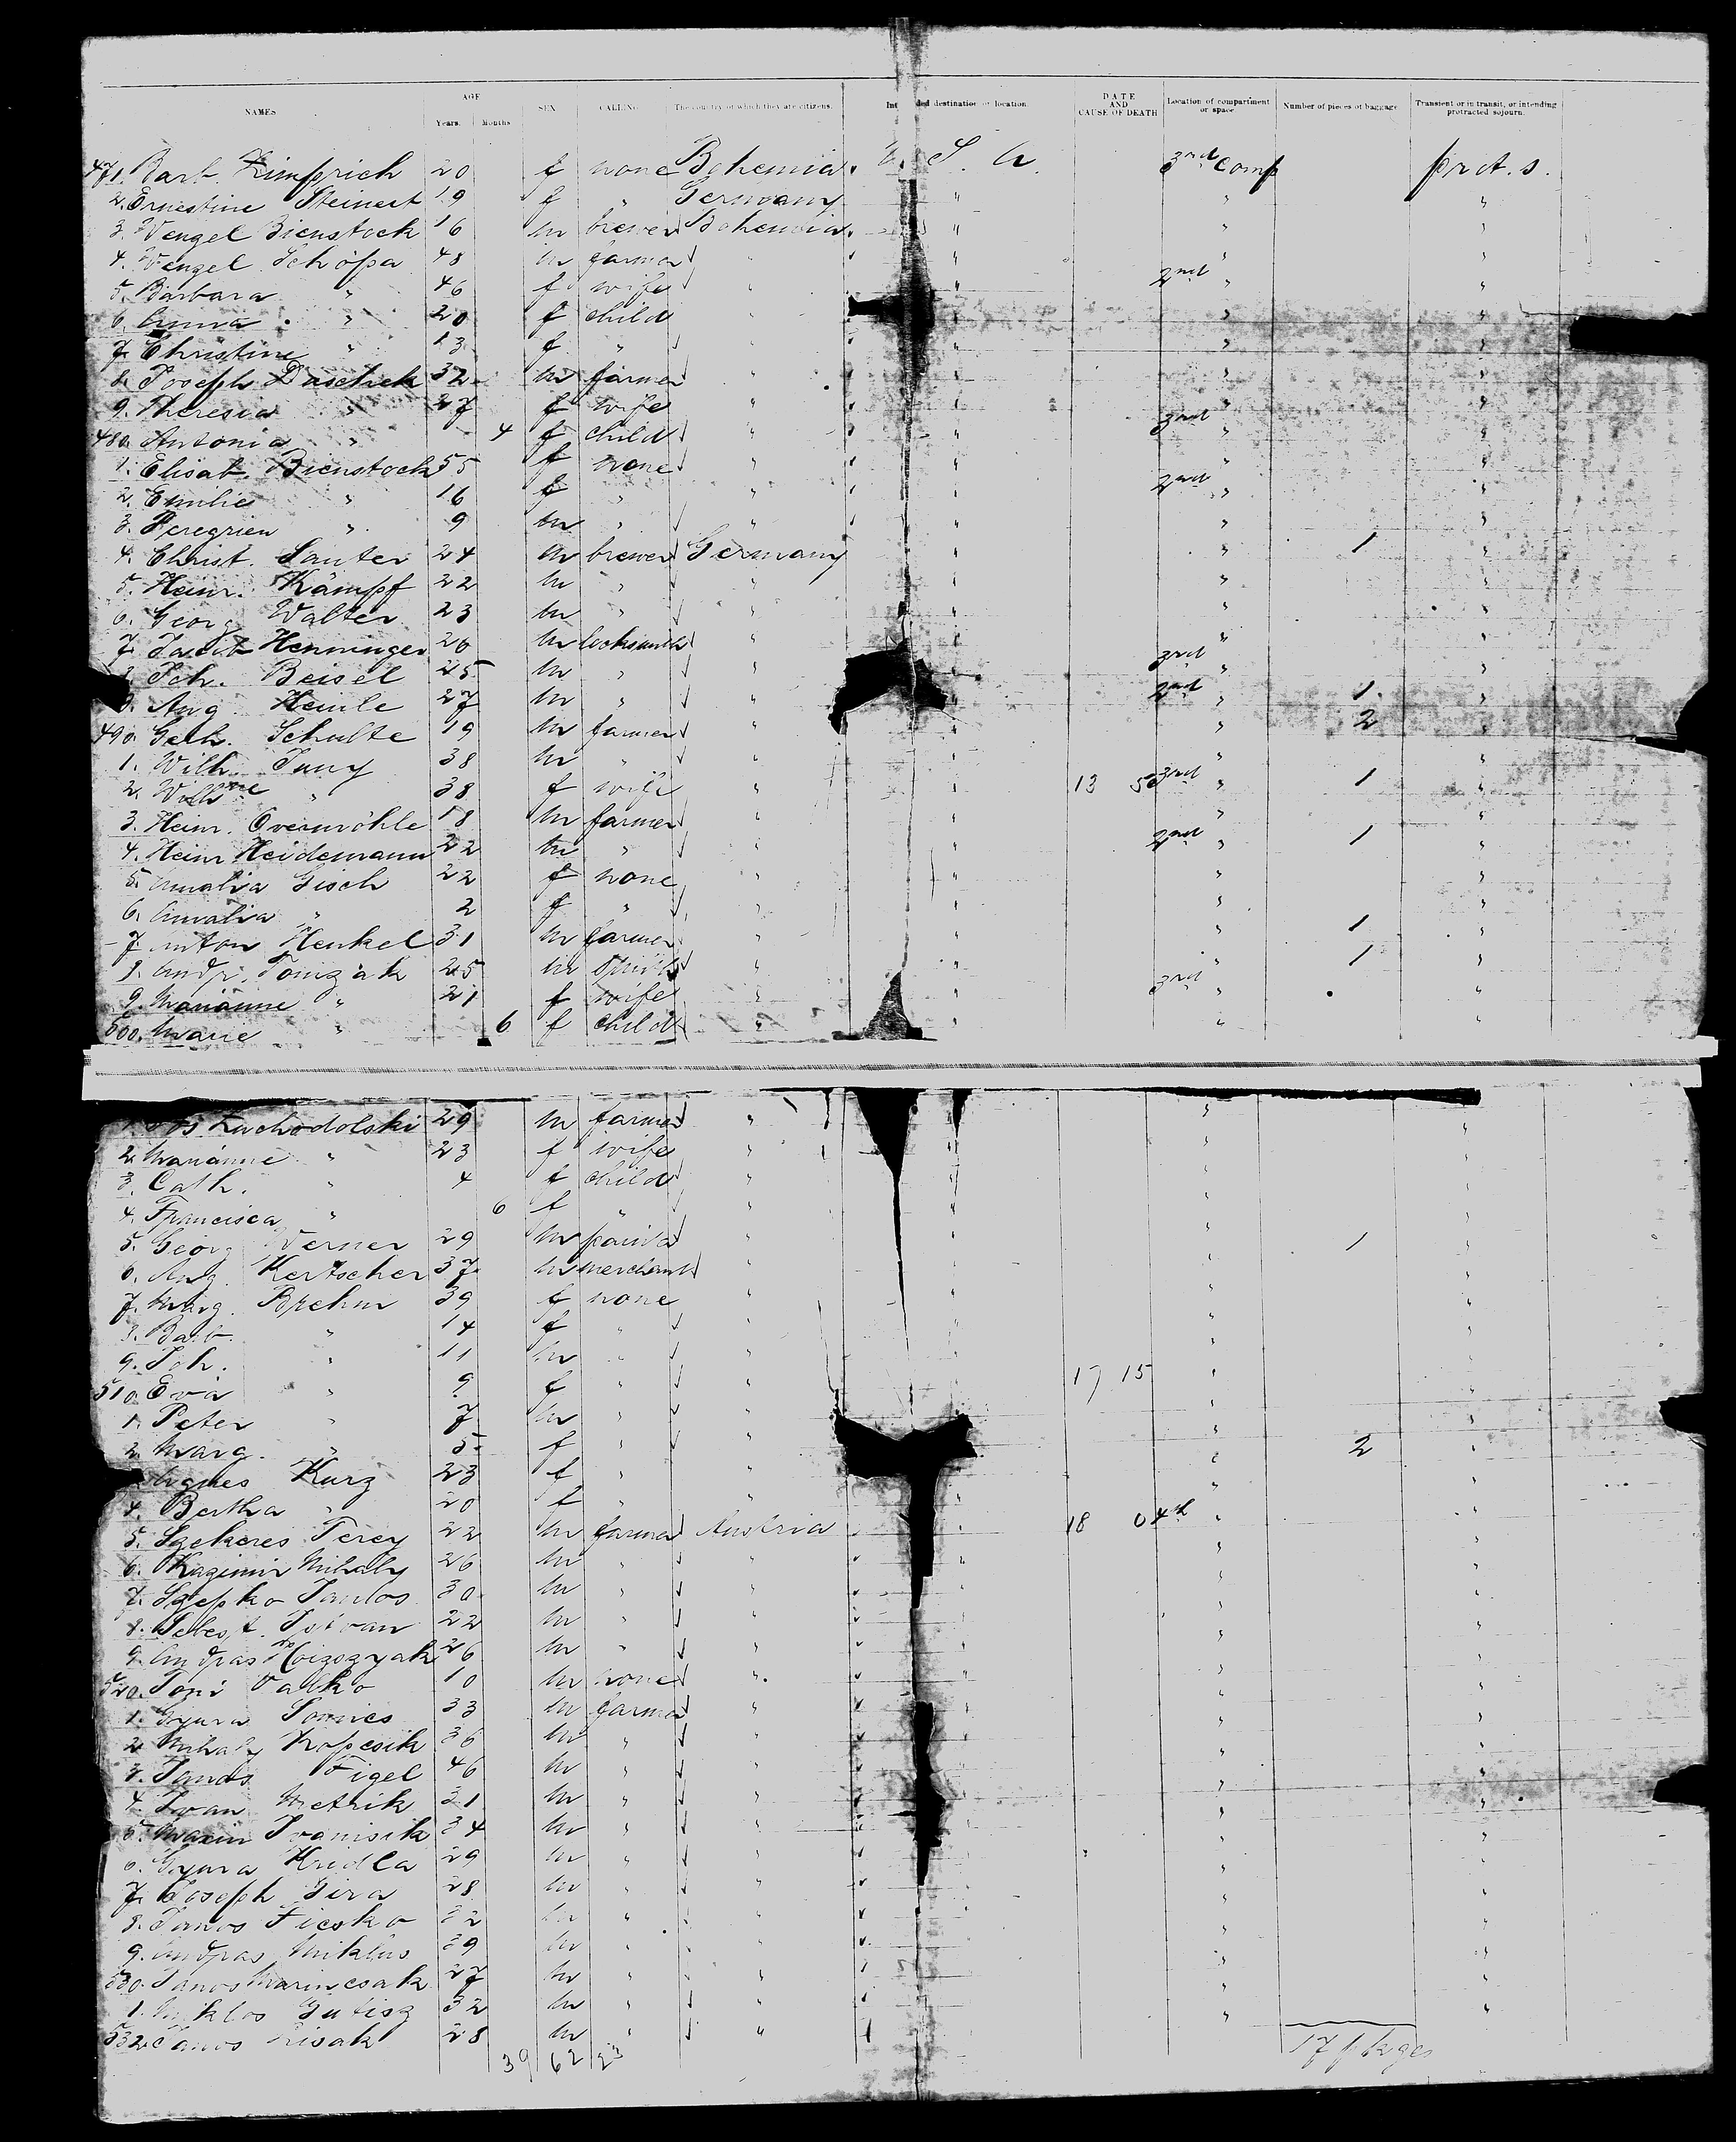 NAMES AGE Years. Months SEX CALLING The country of which they are citizens. Intended destination or location DATE AND CAUSE OF DEATH Location of compartment or space Number of pieces of baggage Transient or in transit, or intending protracted sojourn.
471. Barb. Kimprich 20 f none Bohemia. U. S. A. 3rd comp prot. s.
2. Ernestine Steinert 19 f " Germany " " "
3. Wenzel Bienstock 16 m brewer Bohemia. " " "
4. Wenzel Schöpa 48 m farmer " " " "
5. Barbara " 46 f wife " " 2nd " "
6. Anna " 20 f child " " " "
7. Christine " 13 f " " " " "
8. Joseph Duschek 32 m farmer " " " "
9. Theresia " 27 f wife " " " "
480. Antonia " 4 f child " " 3rd " "
1. Elisab. Bienstock 55 f none " " " "
2. Emilie " 16 f " " " 2nd " "
3. Peregrien " 9 m " " " " "
4. Christ. Sauter 24 m brewer Germany " " 1 "
5. Heinr. Kämpf 22 m " " " " "
6. Georg Walter 23 m " " " " "
7. Jacob Henninger 26 m locksmith " " " "
8. Joh. Beisel 25 m " " " 3rd " "
9. Aug. Heinle 27 m " " " 2nd " 1 "
490. Gerh. Schulte 19 m farmer " " " 2 "
1. Wilh. Jung 38 m " " " " "
2. Wilhme " 38 f wife " " 13 5 3rd " 1 "
3. Heinr. Overmöhle 18 m farmer " " " "
4. Heinr Heidemann 22 m " " " 2nd " 1 "
5. Amalia Gisch 22 f none " " " "
6. Amalia " 2 f " " " " "
7. Anton Henkel 31 m farmer " " " 1 "
8. Andr. Tomzak 25 m smith " " " 1 "
9. Marianne " 21 f wife " " 3rd " "
500. Marie " 6 f child " " " "
1. Jos Zuchodolski 29 m farmer " " " "
2. Marianne " 23 f wife " " " "
3. Cath. " 4 f child " " " "
4. Francisca " 6 f " " " " "
5. Georg Werner 29 m " " " 1 "
6. Aug. Kertscher 37 m merchant " " " "
7. Marg. Brehm 39 f none " " " "
8. Barb. " 14 f " " " " "
9. Joh. " 11 m " " " " "
510. Eva " 9 f " " " 17 15 " "
1. Peter " 7 m " " " " "
2. Marg. " 5 f " " " " 2 "
Agnes Kurz 23 f " " " " "
4. Bertha " 20 f " " " " "
5. Szekeres Ferey 22 m farmer Austria " 18 0 4th " "
6. Kazimir Mihaly 26 m " " " " "
7. Szepko Janos 30 m " " " " "
8. Sebest. Istvan 22 m " " " " "
9. Andras 26 m " " " " "
520. Joni Valko 10 m none " " " "
1. Gyura Somics 33 m farmer " " " "
2. Mihaly Kopcsik 36 m " " " " "
3. Janos Figel 46 m " " " " "
4. Ivan Metrik 31 m " " " " "
5. Maxin Ivanisik 34 m " " " " "
6. Gyura Hridla 29 m " " " " "
7. Joseph Gira 28 m " " " " "
8. Janos Ficsko 32 m " " " " "
9. Andras Miklus 39 m " " " " "
530. Janos Marincsak 27 m " " " " "
1. Miklos Gutisz 32 m " " " " "
532. Janos Lisak 28 m " " " " "
39 62 23 17 pkges